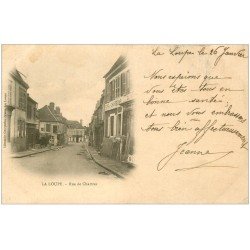 La Loupe le 26 Janvier
Nous espérons que
vous êtes tous en
bonne santé
et nous vous embrassons
tous bien affectueusement
Jeanne
LA LOUPE - Rue de Chartres